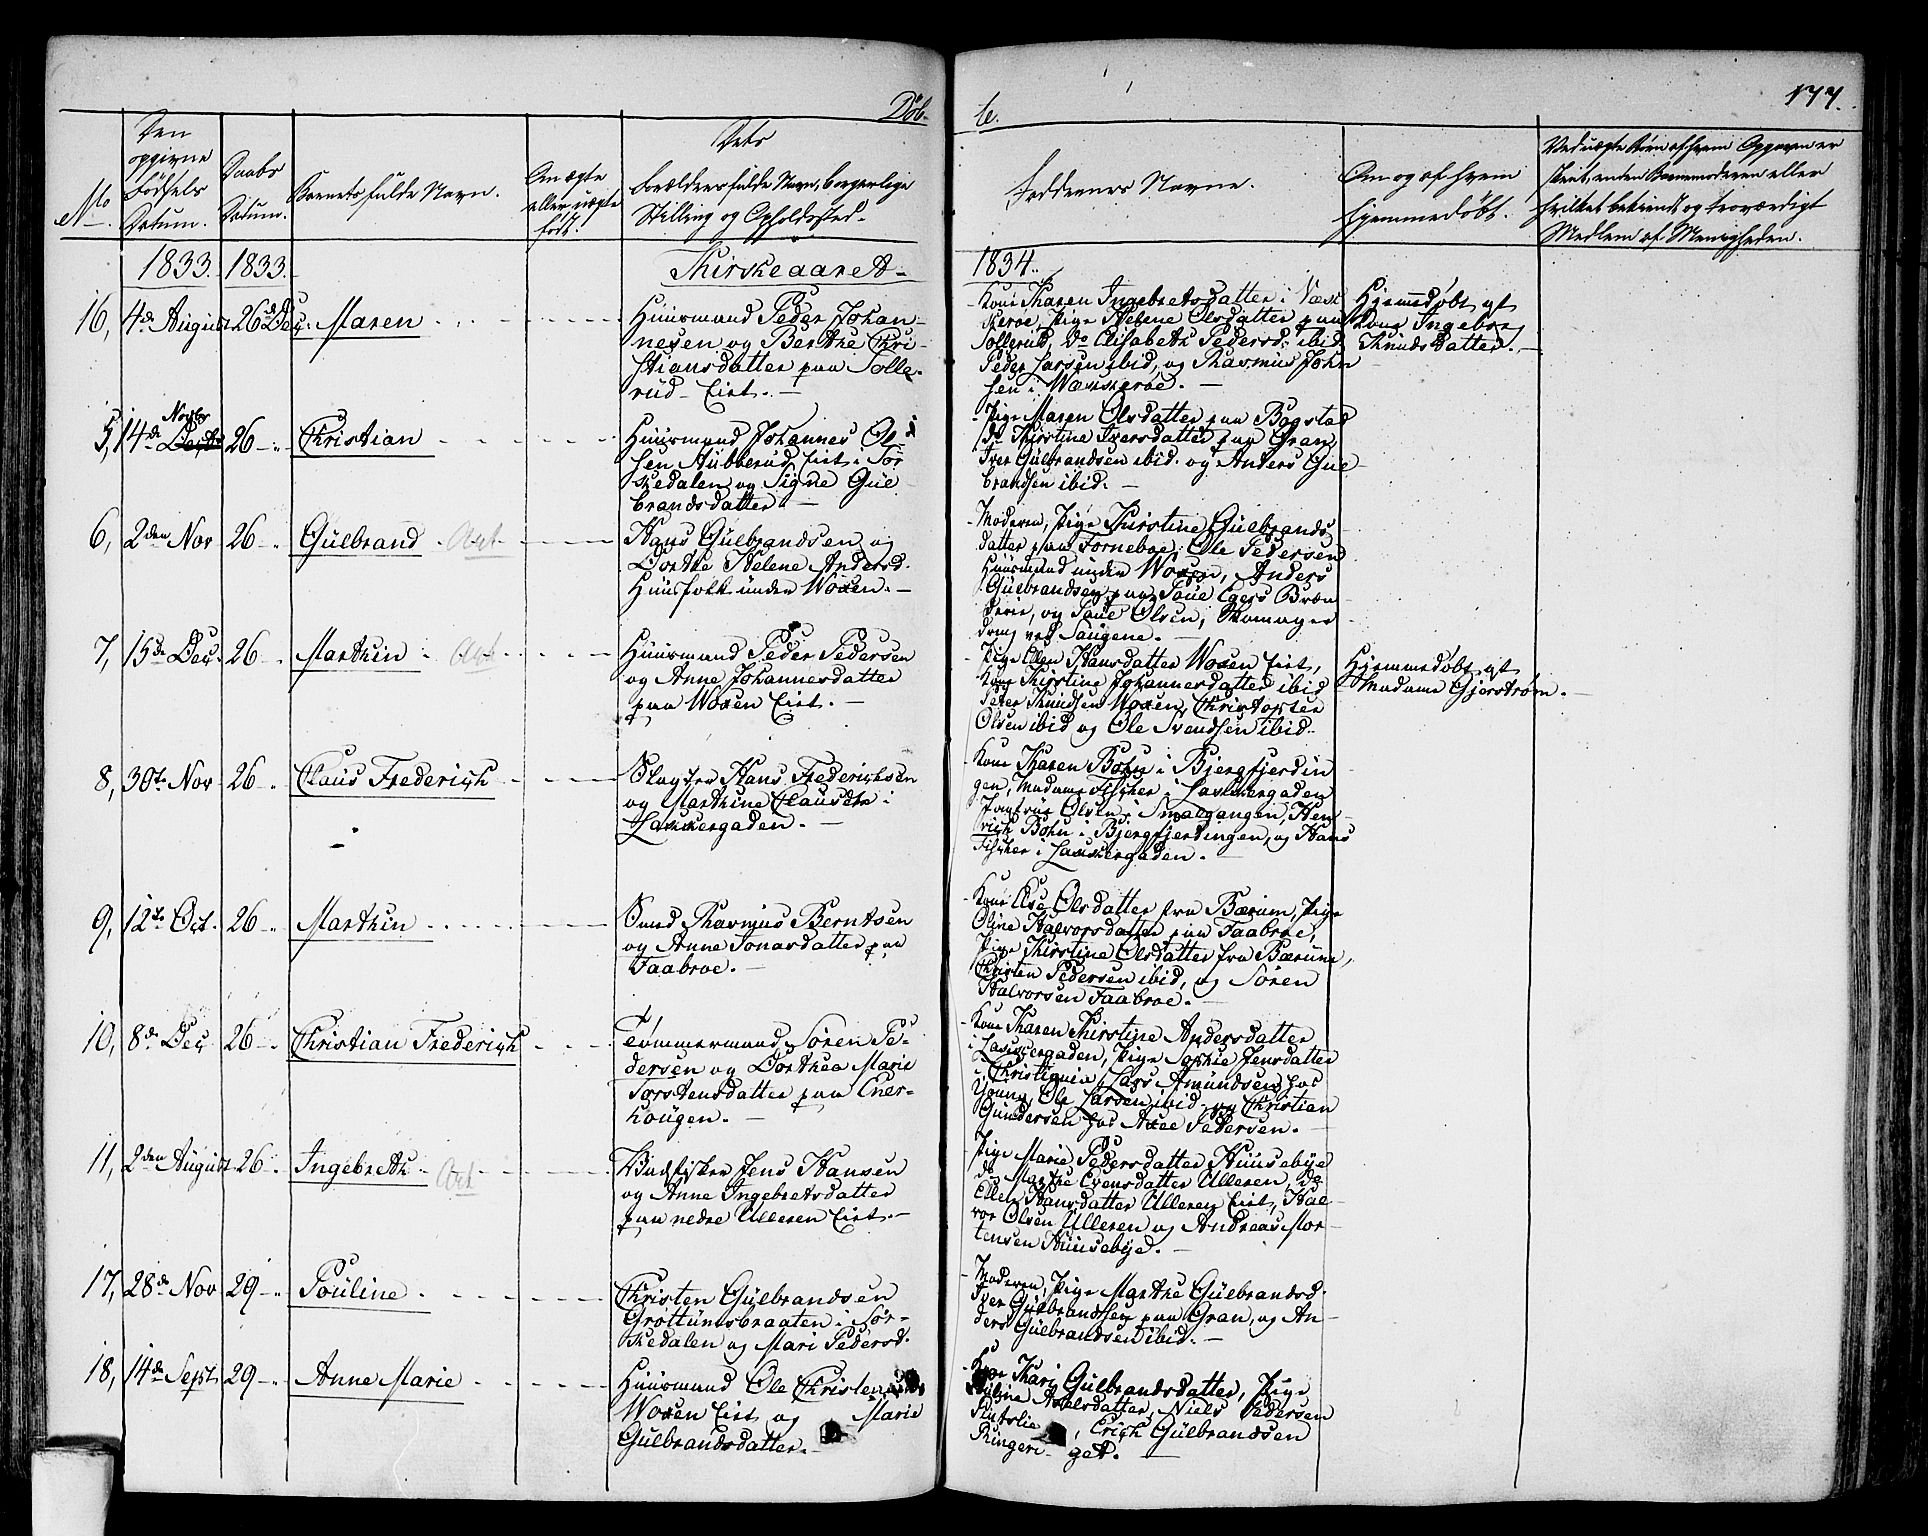 Døb-
te.
177.
No
Den
opgivne
Fødsels
Datum.
Daabs
Datum.
Barnets fulde Navn.
Om ægte
eller uægte
født.
Dets
Forældres fulde Navn, borgerlige
Stilling og Opholdssted.
Faddernes Navne.
Om og af hvem
hjemmedøbt.
Ved uægte Børn af hvem Opgaven er
skeet, enten Barnemoderen eller
hvilket bekiendt og troværdigt
Medlem af Menigheden.
1833. 1833.
Kirkeaaret
1834.
16, 4de August 26de Dec. Maren
Huusmand Peder Johan-
nesen og Berthe Chri-
stiansdatter paa Solle-
rud Eiet.
Kone Karen Ingebretsdatter i Væk
kerøe, Pige Helene Olsdatter paa
Sollerud, Do Elisabeth Pedersd. ibid
Peder Larsen ibid, og Rasmus John
sen i Wækkerøe.
Hjemmedøbt af
Kone Ingeborg
Knudsdatter.
5, 14de Novbr 26 Christian
Huusmand Johannes Ol-
sen Aubberud Eiet i Sør
kedalen og Signe Gul
brandsdatter.
Pige Maren Olsdatter paa Bogstad
do Kirstine Iversdatter paa Gran,
Iver Gulbrandsen ibid. og Anders Gul-
brandsen ibid.
6, 2den Nov 26 Gulbrand
Hans Gulbrandsen og
Dorthe Helene Andersd.
Huusfolk under Woxen.
Moderen, Pige Kirstine Gulbrands
datter paa Forneboe, Ole Pedersen
Huusmand under Woxen, Anders
Gulbrandsen paa Poul Egers Bræn
derie, og Poul Olsen, Skomager
dreng ved Saugene.
7, 15de Dec. 26 Marthin
Huusmand Peder Pedersen
og Anne Johannesdatter
paa Woxen Eiet.
Pige Olea Hansdatter Woxen Eiet,
Kone Kirstine Johannesdatter ibid
Peter Knudsen Woxen, Christopher
Olsen ibid og Ole Svendsen ibid.
Hjemmedøbt af
Madame Gjerstrøm.
8, 30te Nov 26 Claus Frederich
Slagter Hans Frederichsen
og Marthine Clausdtr i
Lakkergaden.
Kone Karen Bohn i Bjergfjerdin
gen, Madame Fischer i Lakkergaden
Jomfrue Olsen i Smalgangen, Hen-
rich Bohn i Bjergfjerdingen, og Hans
Fischer i Lakkergaden.
9, 12te Oct. 26 Marthin
Smed Rasmus Berntsen
og Anne Jonasdatter paa
Faabroe.
Kone Else Olsdatter fra Bærum, Pige
Oline Halvorsdatter paa Faabroe,
Pige Kirstine Olsdatter fra Bærum,
Christen Pedersen ibid, og Søren
Halvorsen Faabroe.
10, 8de Dec 26 Christian Frederich
Tømmermand Søren Pe-
dersen og Dorthea Marie
Torstensdatter paa Ener-
hougen.
Kone Karen Kirstine Andersdatter
i Lakkergaden, Pige Sophie Jensdatter
i Christiania, Lars Amundsen hos
Young, Ole Larsen ibid. og Christian
Gundersen hos Axel Pedersen.
11, 2den August 26 Ingebreth
Budsisker Jens Hansen
og Anne Ingebretsdatter
paa nedre Ulleren Eiet.
Pige Marie Pedersdatter Huusebye
do Marthe Evensdatter Ulleren, do
Ellen Hansdatter Ulleren Eiet, Hal-
vor Olsen Ulleren og Andreas Mor-
tensen Huusebye.
17, 28de Nov 29 Pouline
Christen Gulbrandsen
Grøttumsbraaten i Sør-
kedalen og Mari Pedersd.
Moderen, Pige Marthe Gulbrandsd.
Iver Gulbrandsen paa Gran, og An-
ders Gulbrandsen ibid.
18, 14de Sept 29 Anne Marie
Huusmand Ole Christen
Woxen Eiet og Marie
Gulbrandsdatter.
Kone Kari Gulbrandsdatter, Pige
Axelsdatter, Niels Pedersen
, Erich Gulbrandsen
Ringeri- get.